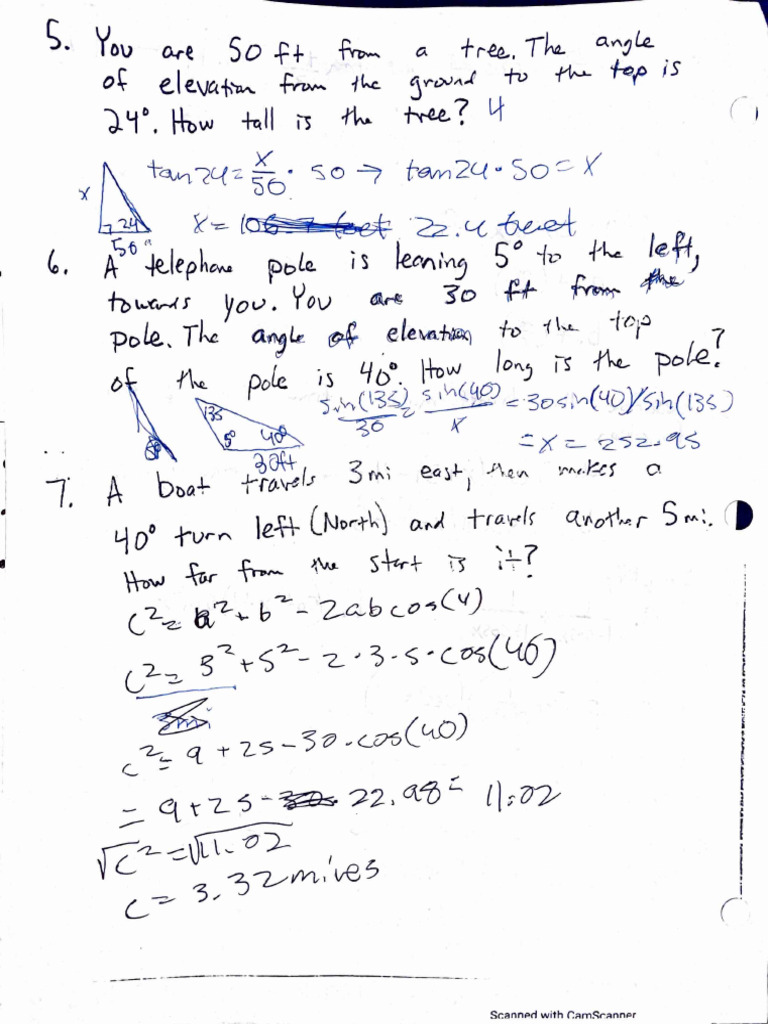 5. You are 50 ft from a tree. The angle
of elevation from the ground to the top is
24°. How tall is the tree? 4
tan24 = x/50 · 50 → tan24 · 50 = x
x
24
50
x = 22.4 feet
6. A telephone pole is leaning 5° to the left,
towards you. You are 30 ft from the
pole. The angle of elevation to the top
of the pole is 40°. How long is the pole?
135
5° 40°
30ft
sin(135)/30 = sin(40)/x = 30sin(40)/sin(135)
= x = 252.95
7. A boat travels 3mi east, then makes a
40° turn left (North) and travels another 5mi.
How far from the start is it?
c² = a² + b² - 2abcos(4)
c² = 3² + 5² - 2·3·5·cos(40)
c² = 9 + 25 - 30·cos(40)
= 9 + 25 - 22.98 = 11.02
√c² = √11.02
c = 3.32 miles
Scanned with CamScanner